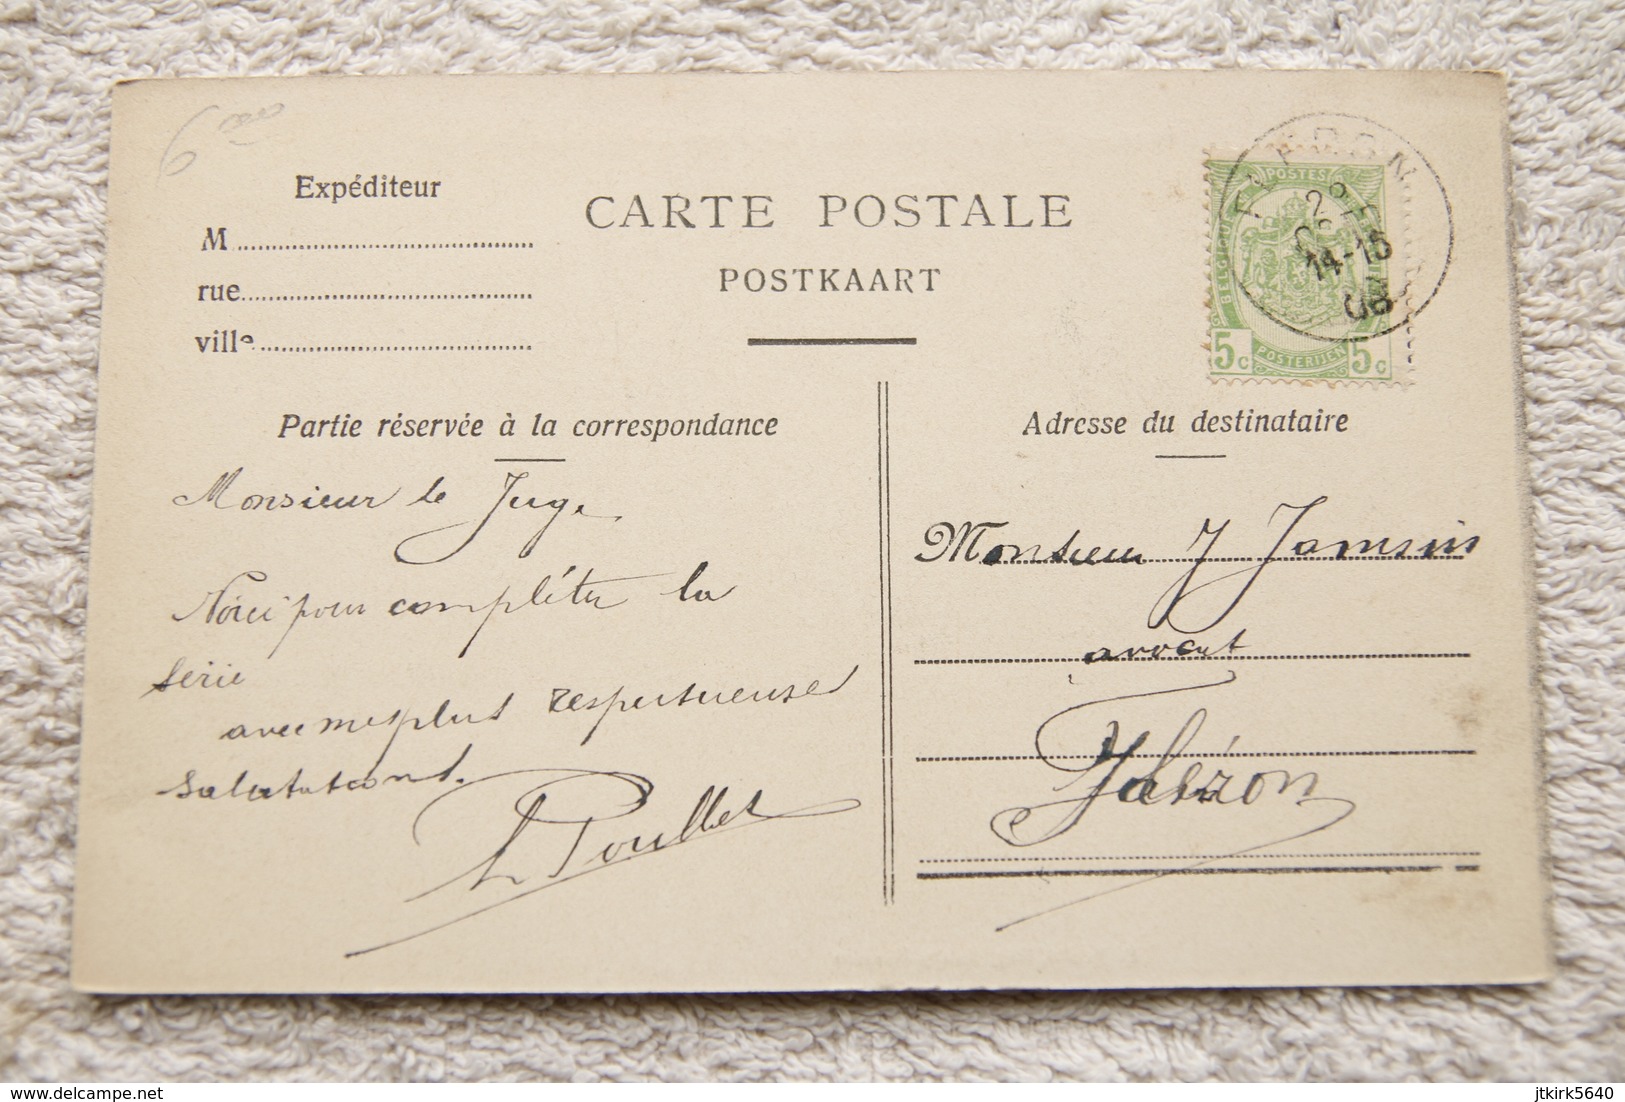 6
Expéditeur
M
rue
ville
CARTE POSTALE
POSTKAART
POSTES
BELGIQUE
22
14-15
08
5c POSTERIJEN 5c
Partie réservée à la correspondance
Adresse du destinataire
Monsieur le Juge
Voici pour compléter la
série
avec mes plus respectueuses
salutations.
L Poullet
Monsieur J Jamsin
avocat
Fléron
delcampe.net
jtkirk5640